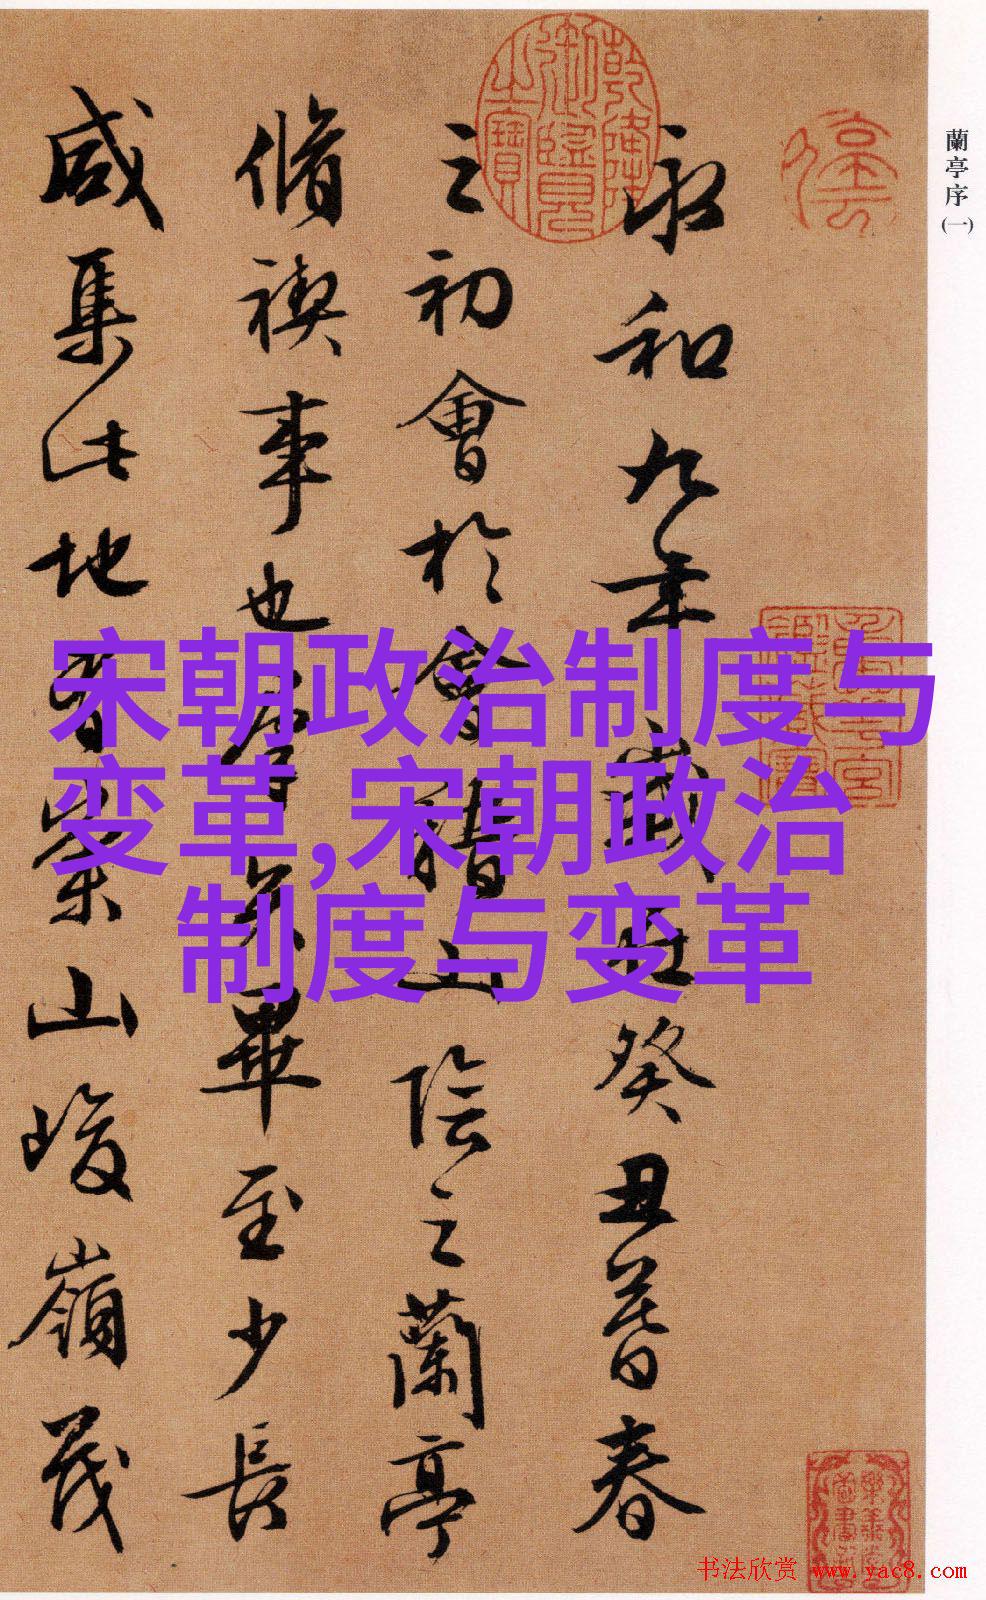 蘭亭序(一)
永和九年歲在癸丑暮春
之初會於會稽山陰之蘭亭
脩禊事也羣賢畢至少長
咸集此地有崇山峻嶺茂
乾隆御覽之寶
宋朝政治制度与
变革,宋朝政治
制度与变革
书法欣赏 www.yac8.com